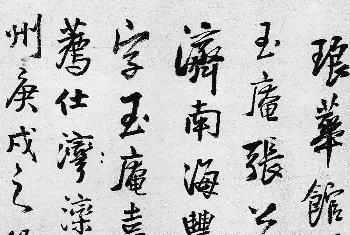 琅華館
玉庵張公
濟南海豐
字玉庵喜
薦仕灣深
州庚戌之